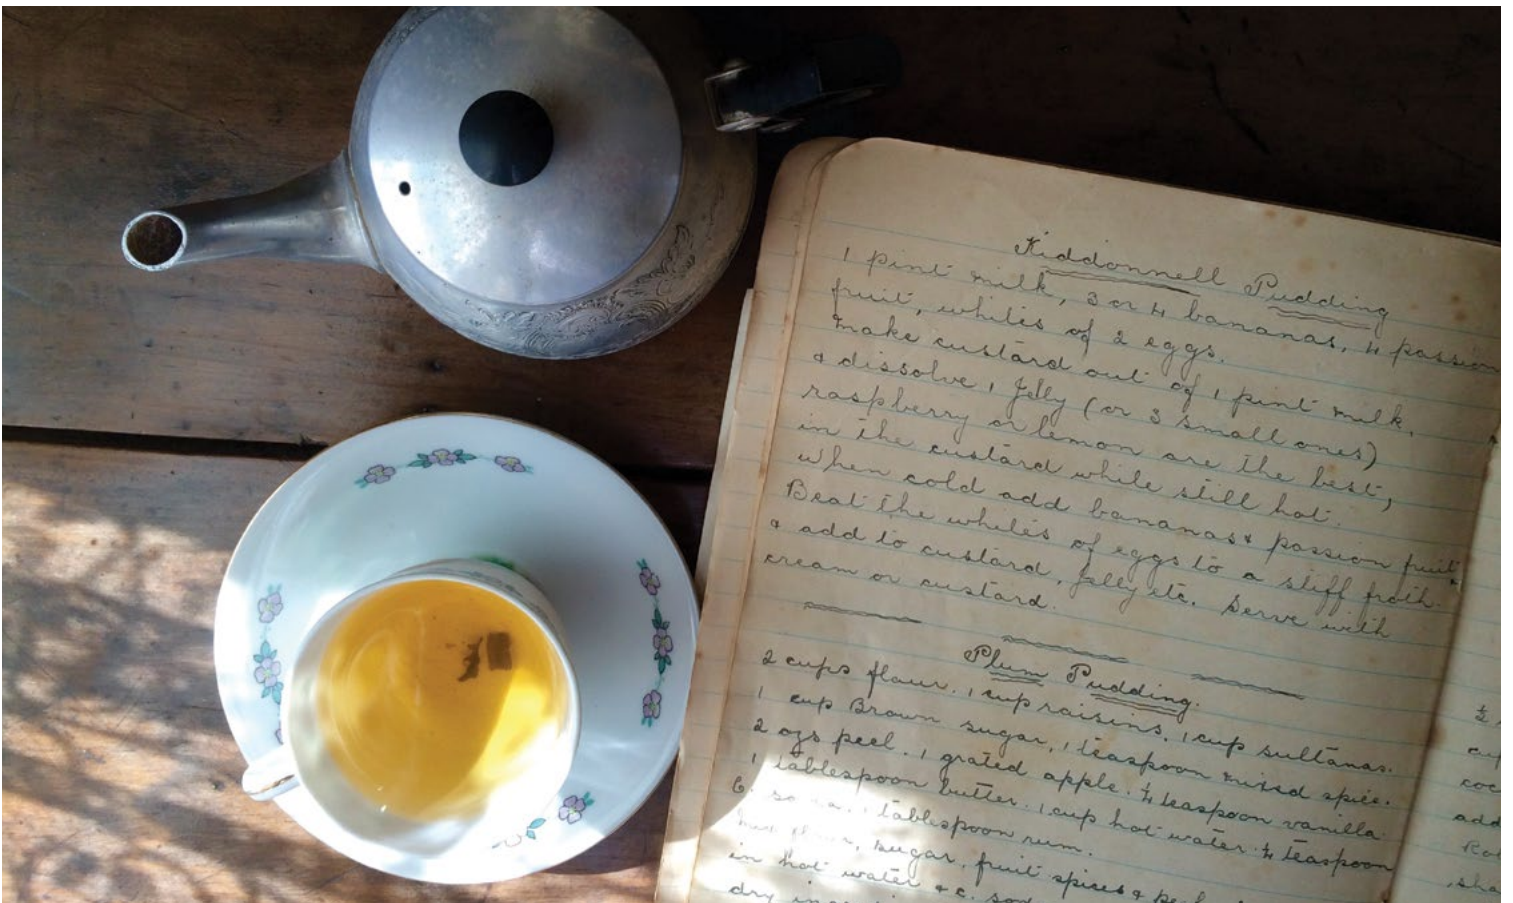 Kiddonnell Pudding
1 pint milk, 3 or 4 bananas, 4 passion
fruit, whites of 2 eggs.
Make custard out of 1 pint milk,
& dissolve 1 Jelly (or 3 small ones)
raspberry or lemon are the best,
in the custard while still hot.
When cold add bananas & passion fruit.
Beat the whites of eggs to a stiff froth
& add to custard, Jelly etc. Serve with
cream or custard.
Plum Pudding.
2 cups flour. 1 cup raisins. 1 cup sultanas.
1 cup Brown sugar, 1 teaspoon mixed spice.
2 ozs peel. 1 grated apple. ¼ teaspoon vanilla.
1 tablespoon butter. 1 cup hot water. ¼ teaspoon
1 tablespoon rum.
flour, sugar, fruit spices &
in hot water & c. sod
dry
½
cup
coc
add
sha